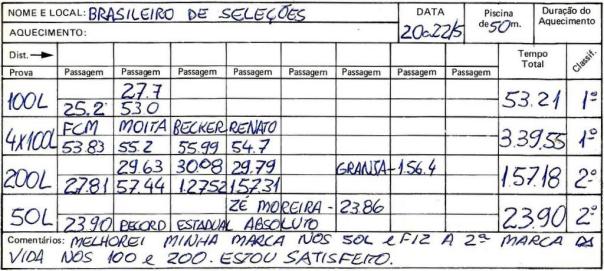 NOME E LOCAL: BRASILEIRO DE SELEÇÕES DATA Piscina Duração do
AQUECIMENTO: 20a22/5 de 50 m. Aquecimento
Dist. → Tempo
Prova Passagem Passagem Passagem Passagem Passagem Passagem Passagem Passagem Total Classif.
27.7
100L 25.2 53.0 53.21 1º
FCM MOITA BECKER RENATO
4X100L 53.83 55.2 55.99 54.7 3.39.55 1º
29.63 30.08 29.79 GRANJA-1.56.4
200L 27.81 57.44 1.27.52 1.57.31 1.57.18 2º
ZÉ MOREIRA - 23.86
50L 23.90 RECORD ESTADUAL ABSOLUTO 23.90 2º
Comentários: MELHOREI MINHA MARCA NOS 50L e FIZ A 2ª MARCA DA
VIDA NOS 100 e 200. ESTOU SATISFEITO.